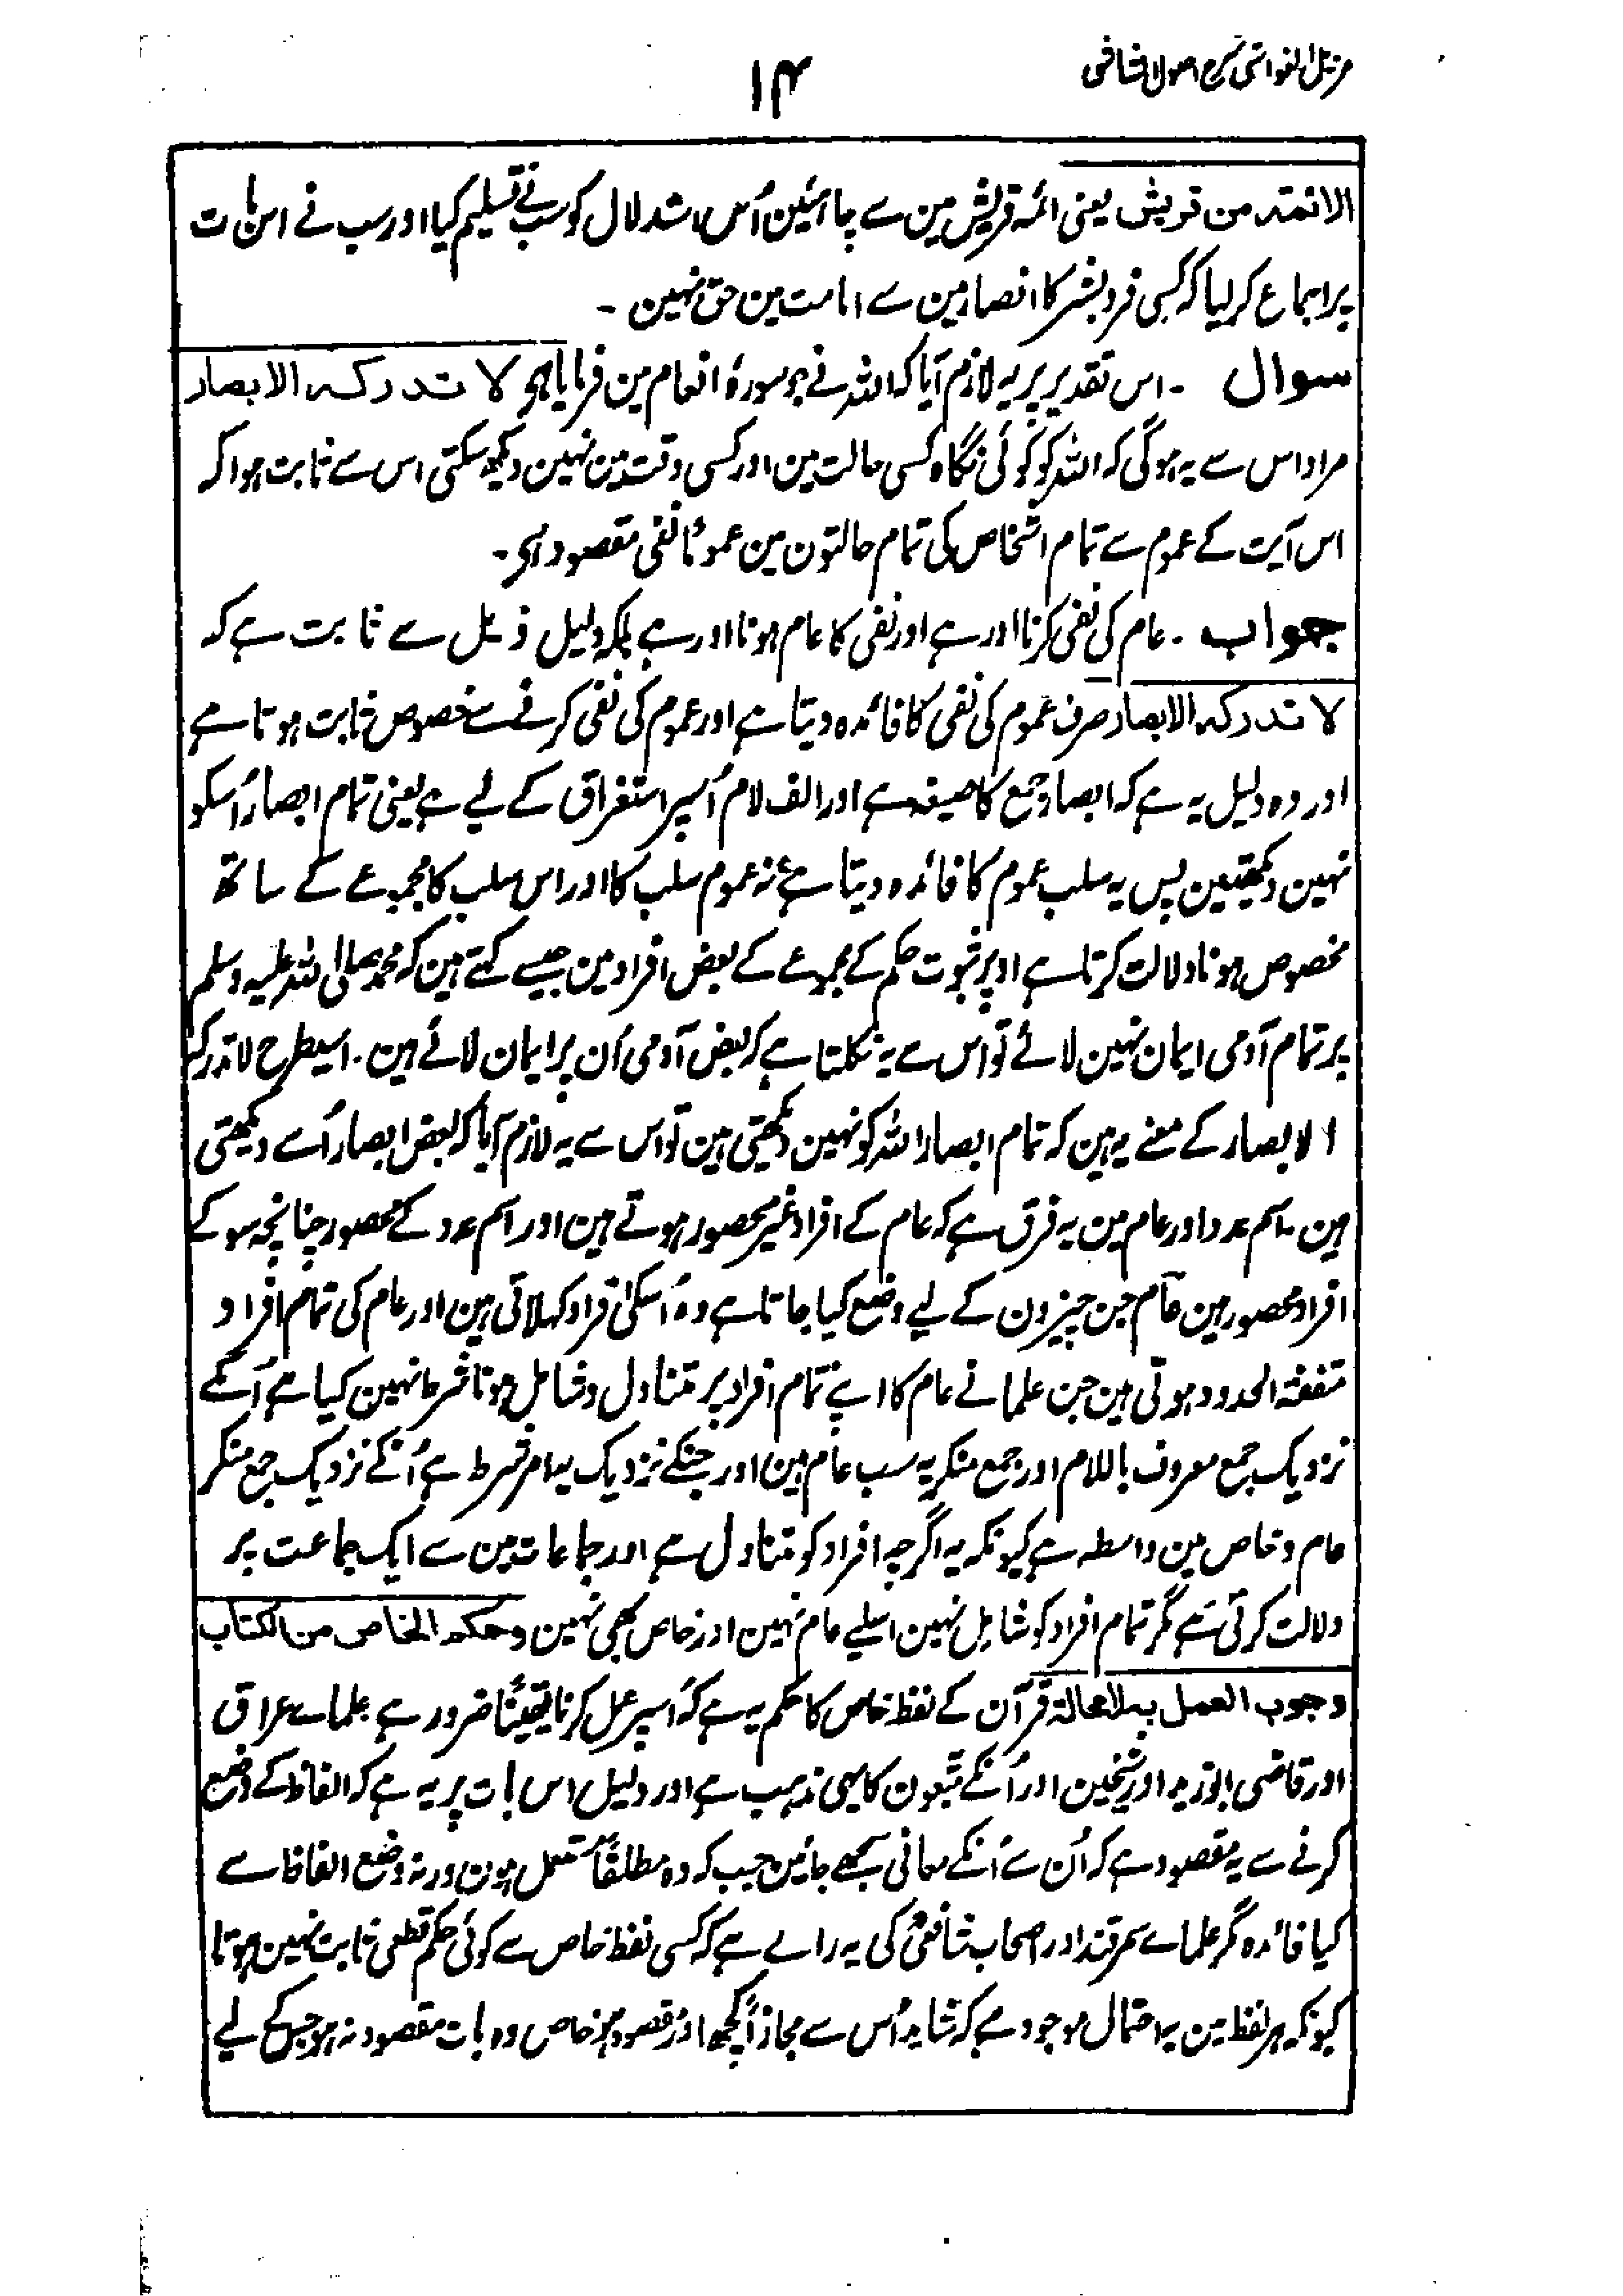 مزیل الغواشی شرح اصول الشاشی
۱۴
الائمۃ من قریش یعنی ائمہ قریش مین سے چاہئین اُس استدلال کو سب نے تسلیم کیا اور سب نے اس بات
پر اجماع کر لیا کہ کسی فرد بشر کا انصار مین سے امامت مین حق نہین ۔
سوال ۔ اس تقدیر پر یہ لازم آیا کہ اللہ نے جو سورۂ انعام مین فرمایا ہی لا تدرکہ الابصار
مراد اس سے یہ ہوگی کہ اللہ کو کوئی نگاہ کسی حالت مین اور کسی وقت مین نہین دیکھ سکتی اس سے ثابت ہوا کہ
اس آیت کے عموم سے تمام اشخاص کی تمام حالتون مین عموماً نفی مقصود ہی ۔
جواب ۔ عام کی نفی کرنا اور ہے اور نفی کا عام ہونا اور ہے بلکہ دلیل ذیل سے ثابت ہے کہ
لا تدرکہ الابصار صرف عموم کی نفی کا فائدہ دیتا ہے اور عموم کی نفی کرنے سے خصوص ثابت ہوتا ہے
اور وہ دلیل یہ ہے کہ ابصار جمع کا صیغہ ہے اور الف لام اُسپر استغراق کے لیے ہے یعنی تمام ابصار اُسکو
نہین دیکھتین پس یہ سلب عموم کا فائدہ دیتا ہے نہ عموم سلب کا اور اس سلب کا مجموعے کے ساتھ
مخصوص ہونا دلالت کرتا ہے اوپر ثبوت حکم کے مجموعے کے بعض افراد مین جیسے کہتے ہین کہ محمد صلی اللہ علیہ وسلم
پر تمام آدمی ایمان نہین لائے تو اس سے یہ نکلتا ہے کہ بعض آدمی اُن پر ایمان لائے ہین ۔ اسیطرح لا تدرکہ
الابصار کے معنے یہ ہین کہ تمام ابصار اللہ کو نہین دیکھتی ہین تو اس سے یہ لازم آیا کہ بعض ابصار اُسے دیکھتی
ہین ۔ اسم عدد اور عام مین یہ فرق ہے کہ عام کے افراد غیر محصور ہوتے ہین اور اسم عدد کے محصور چنانچہ سو کے
افراد محصور ہین عام جن چیزون کے لیے وضع کیا جاتا ہے وہ اُسکی افراد کہلاتی ہین اور عام کی تمام افراد
متفقۃ الحدود ہوتی ہین جن علما نے عام کا اپنے تمام افراد پر متناول و شامل ہونا شرط نہین کیا ہے اُنکے
نزدیک جمع معروف باللام اور جمع منکر یہ سب عام ہین اور جنکے نزدیک یہ امر شرط ہے اُنکے نزدیک جمع منکر
عام و خاص مین واسطہ ہے کیونکہ یہ اگرچہ افراد کو متناول ہے اور جماعات مین سے ایک جماعت پر
دلالت کرتی ہے مگر تمام افراد کو شامل نہین اسلیے عام نہین اور خاص بھی نہین وحکم الخاص من الکتاب
وجوب العمل بہ لامحالۃ قرآن کے لفظ خاص کا حکم یہ ہے کہ اُسپر عمل کرنا یقیناً ضرور ہے علماے عراق
اور قاضی ابو زید اور شیخین اور اُنکے متبعون کا یہی مذہب ہے اور دلیل اس بات پر یہ ہے کہ الفاظ کے وضع
کرنے سے یہ مقصود ہے کہ اُن سے اُنکے معانی سمجھے جائین جب کہ وہ مطلقاً مستعمل ہون ورنہ وضع الفاظ سے
کیا فائدہ مگر علماے سمرقند اور اصحاب شافعی کی یہ رائے ہے کہ کسی لفظ خاص سے کوئی حکم قطعی ثابت نہین ہوتا
کیونکہ ہر لفظ مین یہ احتمال موجود ہے کہ شاید اُس سے مجازاً کچھ اور مقصود ہو خاص وہ بات مقصود نہ ہو جس کے لیے